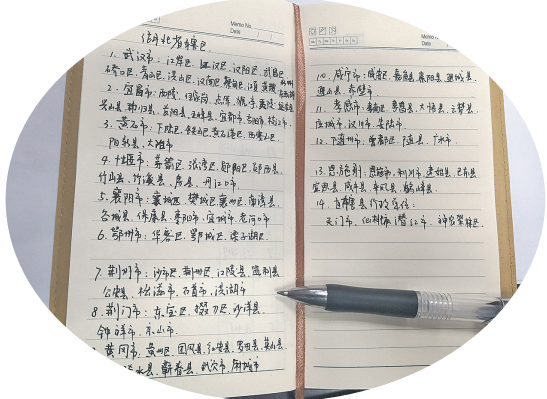 湖北省辖区
1. 武汉市：江岸区、江汉区、汉阳区、武昌区
硚口区、青山区、洪山区、汉南区、蔡甸区、江夏、黄陂
2. 宜昌市：西陵、伍家岗、点军、猇亭、夷陵、远安县
兴山县、秭归县、长阳县、五峰县、宜都市、当阳市、枝江市、
3. 黄石市：下陆区、铁山区、黄石港区、西塞山区、
阳新县、大冶市
4. 十堰市：茅箭区、张湾区、郧阳区、郧西县、
竹山县、竹溪县、房县、丹江口市
5. 襄阳市：襄城区、樊城区、襄州区、南漳县、
谷城县、保康县、枣阳市、宜城市、老河口市
6. 鄂州市：华容区、鄂城区、梁子湖区、
7. 荆州市：沙市区、荆州区、江陵县、监利县
公安县、松滋市、石首市、洪湖市
8. 荆门市：东宝区、掇刀区、沙洋县、
钟祥市、京山市、
9. 黄冈市：黄州区、团风县、红安县、罗田县、英山县、
水县、蕲春县、武穴市、麻城市
Memo No.
Date / /
10. 咸宁市：咸安区、嘉鱼县、通城县、
通山县、赤壁市
11. 孝感市：孝南区、孝昌县、大悟县、云梦县、
应城市、汉川市、安陆市
12. 随州市：曾都区、随县、广水市、
13. 恩施州：恩施市、利川市、建始县、巴东县、
宣恩县、咸丰县、来凤县、鹤峰县、
14. 省辖县行政单位：
天门市、仙桃市、潜江市、神农架林区、
Memo No.
Date / /